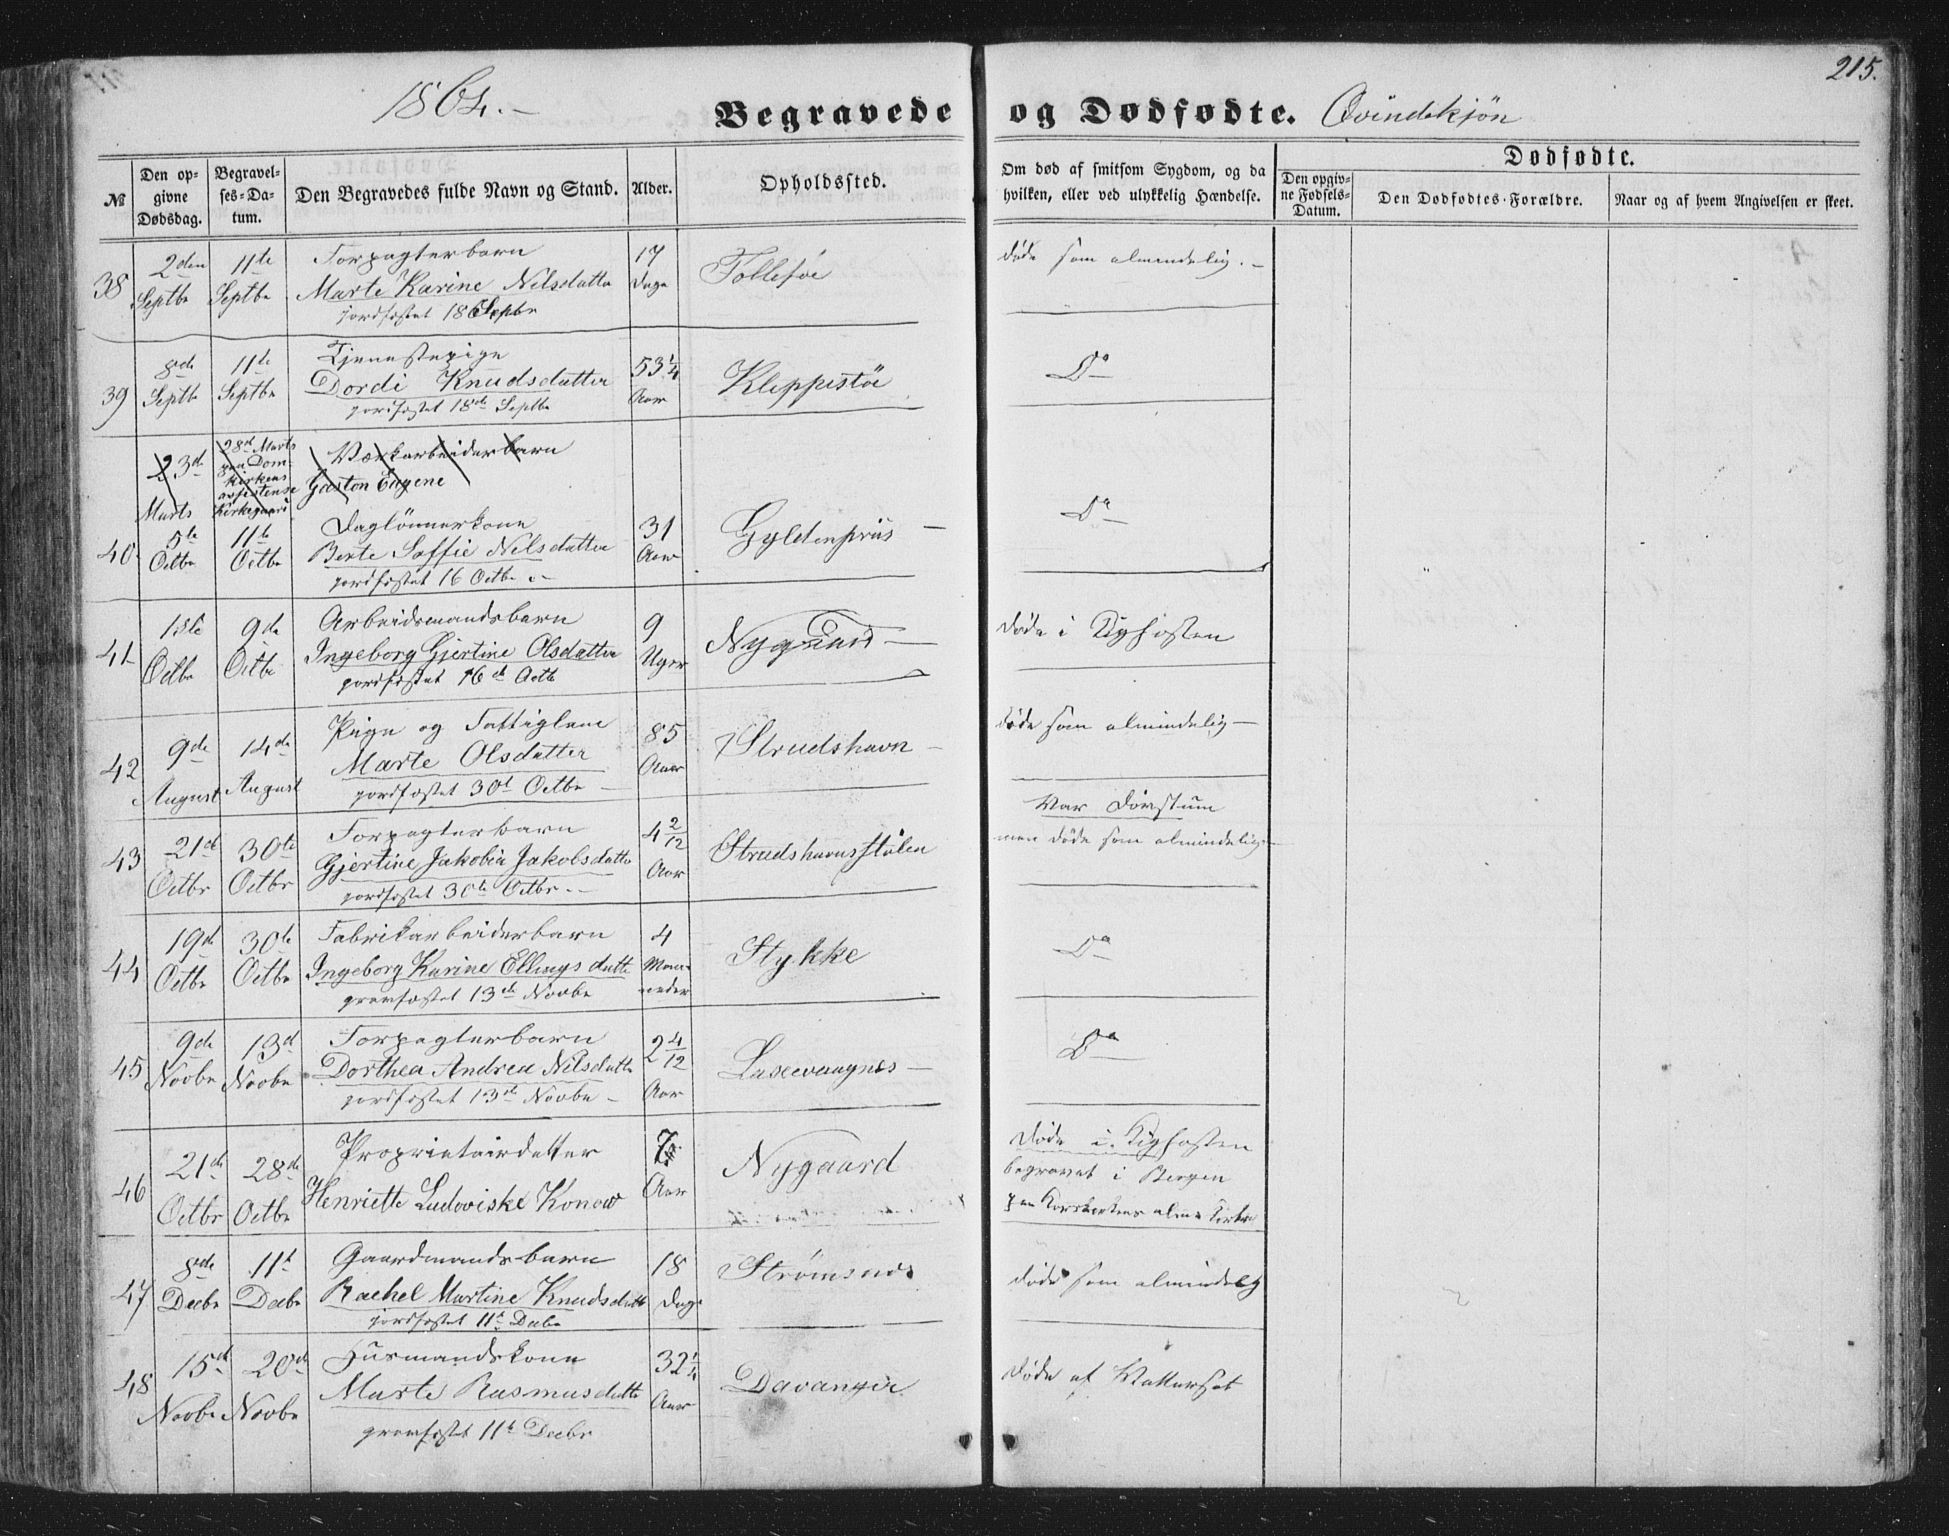 215.
1864.-
Begravede og Dødfødte. Qvindekjön
№
Den opgivne Dødsdag.
Begravelses-Datum.
Den Begravedes fulde Navn og Stand.
Alder.
Opholdssted.
Om død af smitsom Sygdom, og da hvilken, eller ved ulykkelig Hændelse.
Dødfødte.
Den opgivne Fødsels-Datum.
Den Dødfødtes Forældre.
Naar og af hvem Angivelsen er skeet.
38
2den Septbr
11te Septbr
Forpagterbarn
Marte Karine Nilsdatter
jordfæstet 18 Septbr
17 Dage
Follesøe
døde som almindelig.-
39
8de Septbr
11te Septbr
Tjenestepige
Dordi Knudsdatter
jordfæstet 18de Septbr
53 1/4 Aar
Kleppestöe
Do
23de Marts
28de Marts paa Domkirkens kirkegaard
Værkarbeiderbarn
Gaston Eugene
40
5te Octbr
11te Octbr
Daglönnerkone
Berte Soffie Nilsdatter
jordfæstet 16 Octbr.-
31 Aar
Gyldenpriis -
Do
41
1ste Octbr
9de Octbr
Arbeidsmandsbarn
Ingeborg Gjertine Olsdatter
jordfæstet 16de Octb
9 Uger
Nygaard -
døde i Kighosten
42
9de August
14de August
Pige og Fattiglem
Marte Olsdatter
jordfæstet 30te Octbr
85 Aar
Strudshavn -
døde som almindelig -
43
21de Octbr
30te Octbr
Forpagterbarn
Gjertine Jakobia Jakobsdatter
jordfæstet 30te Octbr.-
4 2/12 Aar
Strudshavnsstølen
Var Døvstum
men døde som almindelig -
44
19de Octbr
30te Octbr
Fabrikarbeiderbarn
Ingeborg Karine Ellingsdatter
gravfæstet 13de Novbr
4 Maaneder
Stykke
Do
45
9de Novbr
13de Novbr
Forpagterbarn
Dorthea Andrea Nilsdatter
jordfæstet 13de Novbr -
2 4/12 Aar
Do
46
21de Octbr
28de Octbr
Proprietairdatter
Henriette Ludoviske Konow
7 Aar
Nygaard
Døde i Kighosten
begravet i Bergen
paa Korskirkens alm. Kirkeg
47
8de Decbr
11te Decbr
Gaardmandsbarn
Rachel Martine Knudsdatter
jordfæstet 11te Decbr
18 Dage
Strømsnes
døde som almindelig
48
15de Novbr
20de Novbr
Husmandskone
Marte Rasmusdatter
gravfæstet 11te Decbr
32 1/4 Aar
Davanger
døde af Vattersot